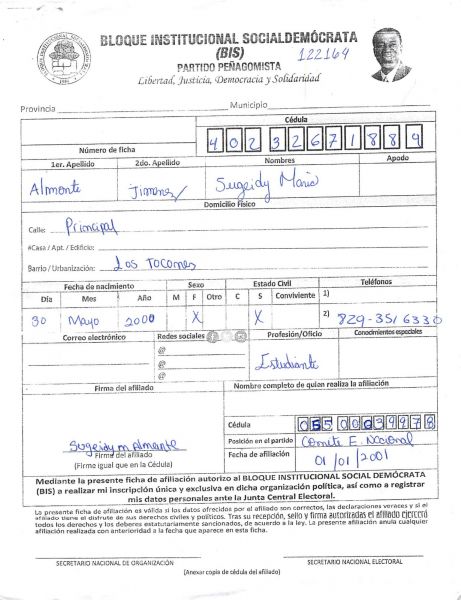 BLOQUE INSTITUCIONAL SOCIALDEMÓCRATA
(BIS) 122164
PARTIDO PEÑAGOMISTA
Libertad, Justicia, Democracia y Solidaridad
Provincia Municipio
Cédula
Número de ficha 40232671889
1er. Apellido 2do. Apellido Nombres Apodo
Almonte Jimenez Sugeidy Maria
Domicilio Físico
Calle: Principal
#Casa / Apt. / Edificio:
Barrio / Urbanización: Los Tocones
Fecha de nacimiento Sexo Estado Civil Teléfonos
Día Mes Año M F Otro C S Conviviente 1)
30 Mayo 2000 X X 2) 829-351 6330
Correo electrónico Redes sociales Profesión/Oficio Conocimientos especiales
@
@ Estudiante
@
Firma del afiliado Nombre completo de quien realiza la afiliación
Cédula 05500639278
Sugeidy m Almonte Posición en el partido Comite E. Nacional
Firma del afiliado Fecha de afiliación 01/01/2001
(Firme igual que en la Cédula)
Mediante la presente ficha de afiliación autorizo al BLOQUE INSTITUCIONAL SOCIAL DEMÓCRATA
(BIS) a realizar mi inscripción única y exclusiva en dicha organización política, así como a registrar
mis datos personales ante la Junta Central Electoral.
La presente ficha de afiliación es válida si los datos ofrecidos por el afiliado son correctos, las declaraciones veraces y si el
afiliado tiene el disfrute de sus derechos civiles y políticos. Tras su recepción, sello y firma autorizadas el afiliado ejercerá
todos los derechos y los deberes estatutariamente sancionados, de acuerdo a la ley. La presente afiliación anula cualquier
afiliación realizada con anterioridad a la fecha que aparece en esta ficha.
SECRETARIO NACIONAL DE ORGANIZACIÓN SECRETARIO NACIONAL ELECTORAL
(Anexar copia de cédula del afiliado)